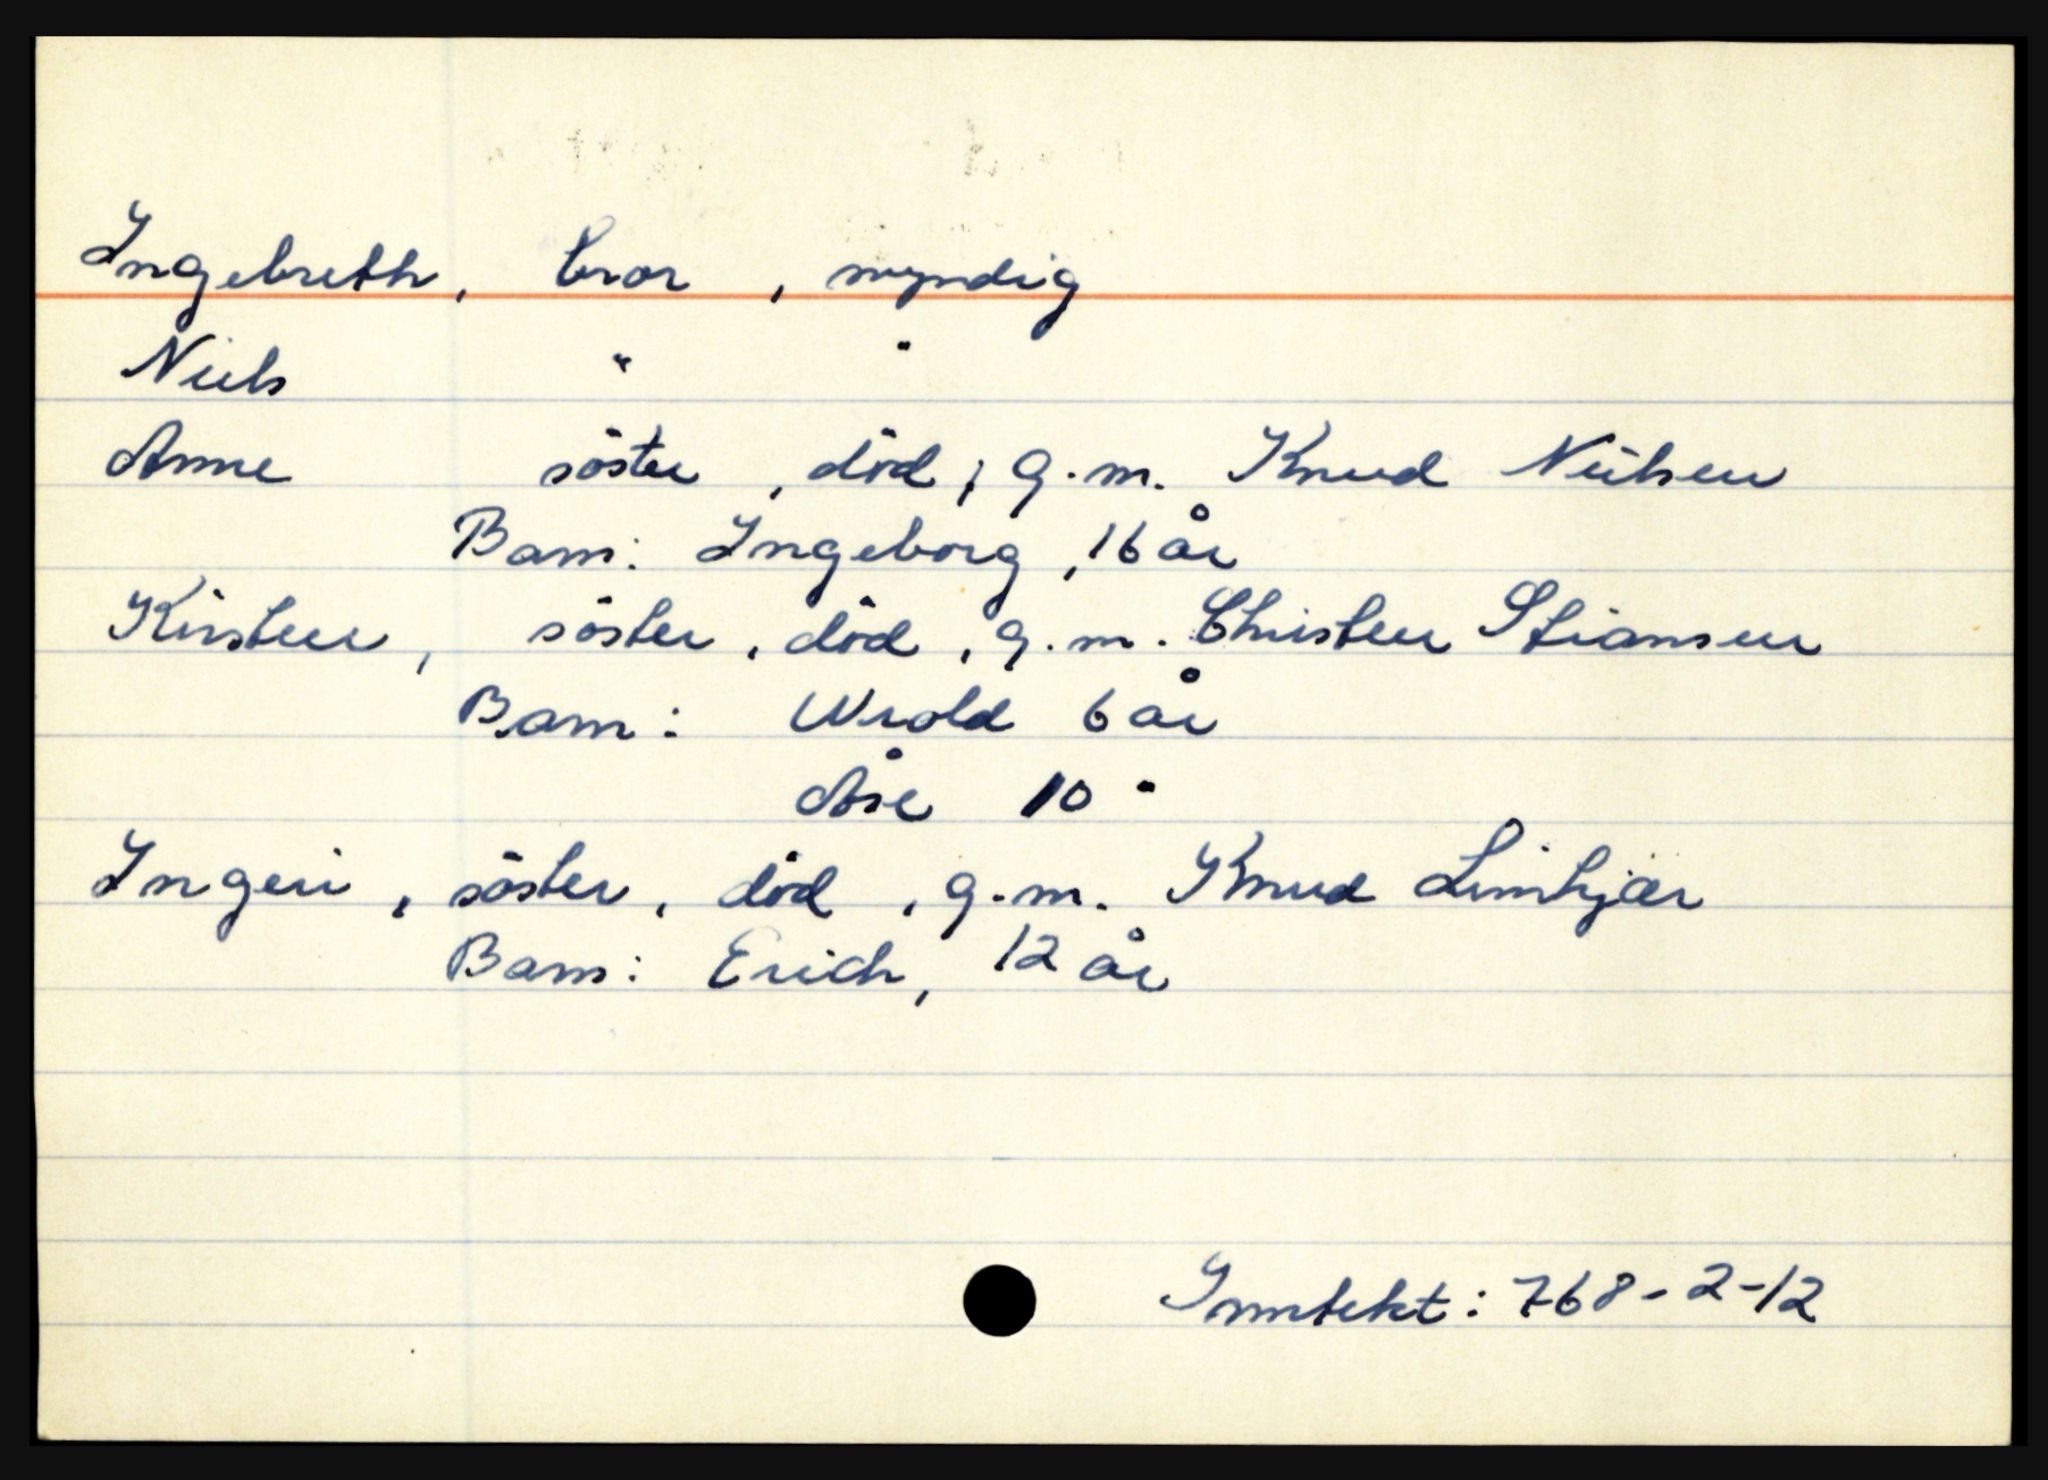 Ingebreth, bror, myndig
Niels " "
Anne søster, død, g.m. Knud Nielsen
Barn: Ingeborg, 16 år
Kirsten, søster, død, g.m. Christen Stiansen
Barn: Wrold 6 år
Åse 10 "
Ingeri, søster, død, g.m. Knud Limkjær
Barn: Erich, 12 år
Inntekt: 768-2-12